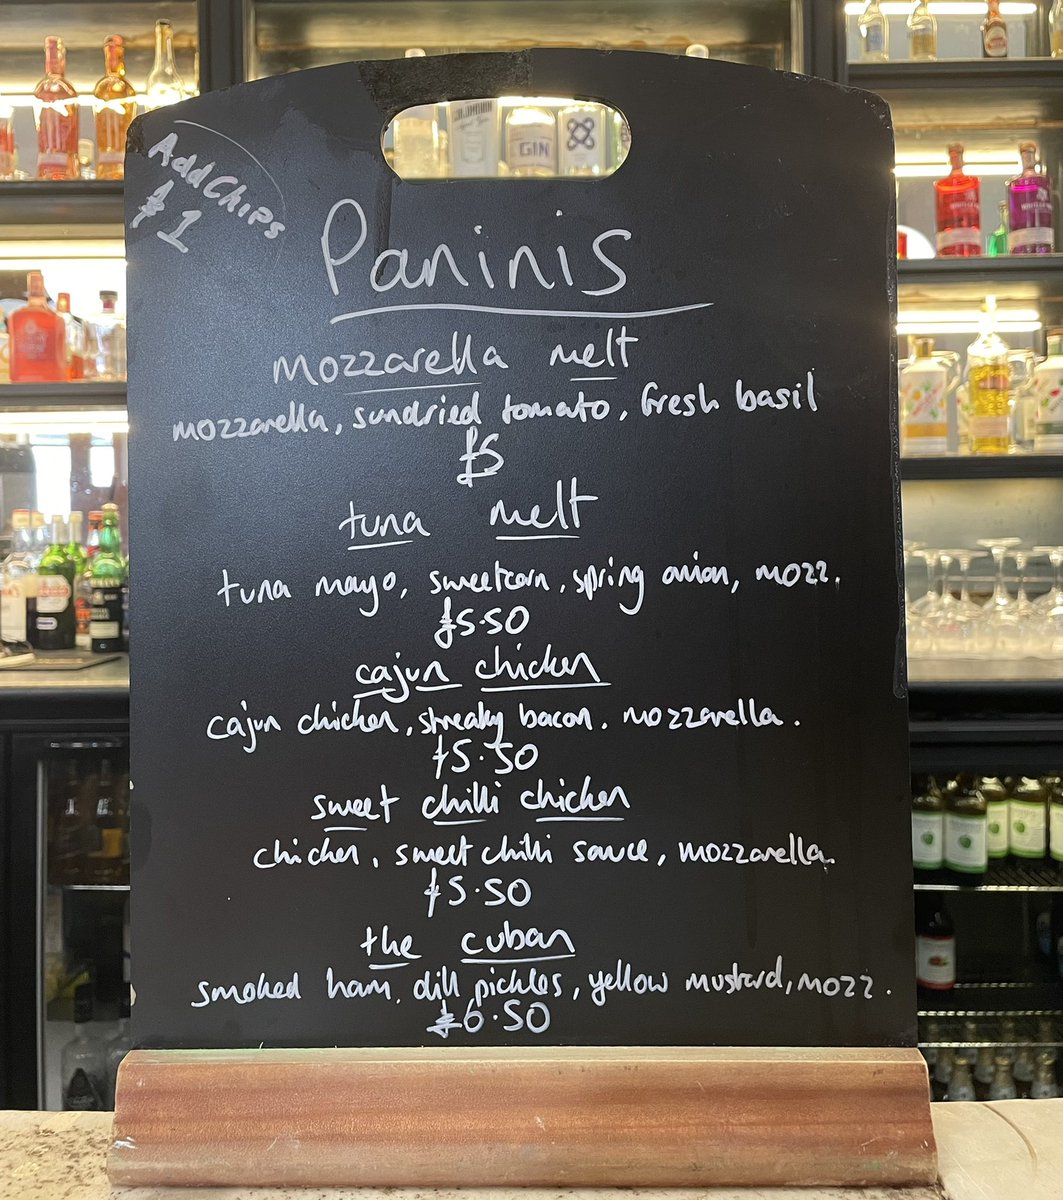 Add Chips
£1
Paninis
mozzarella melt
mozzarella, sundried tomato, fresh basil
£5
tuna melt
tuna mayo, sweetcorn, spring onion, mozz.
£5.50
cajun chicken
cajun chicken, streaky bacon. mozzarella.
£5.50
sweet chilli chicken
chicken, sweet chilli sauce, mozzarella.
£5.50
the cuban
smoked ham, dill pickles, yellow mustard, mozz.
£6.50
GIN